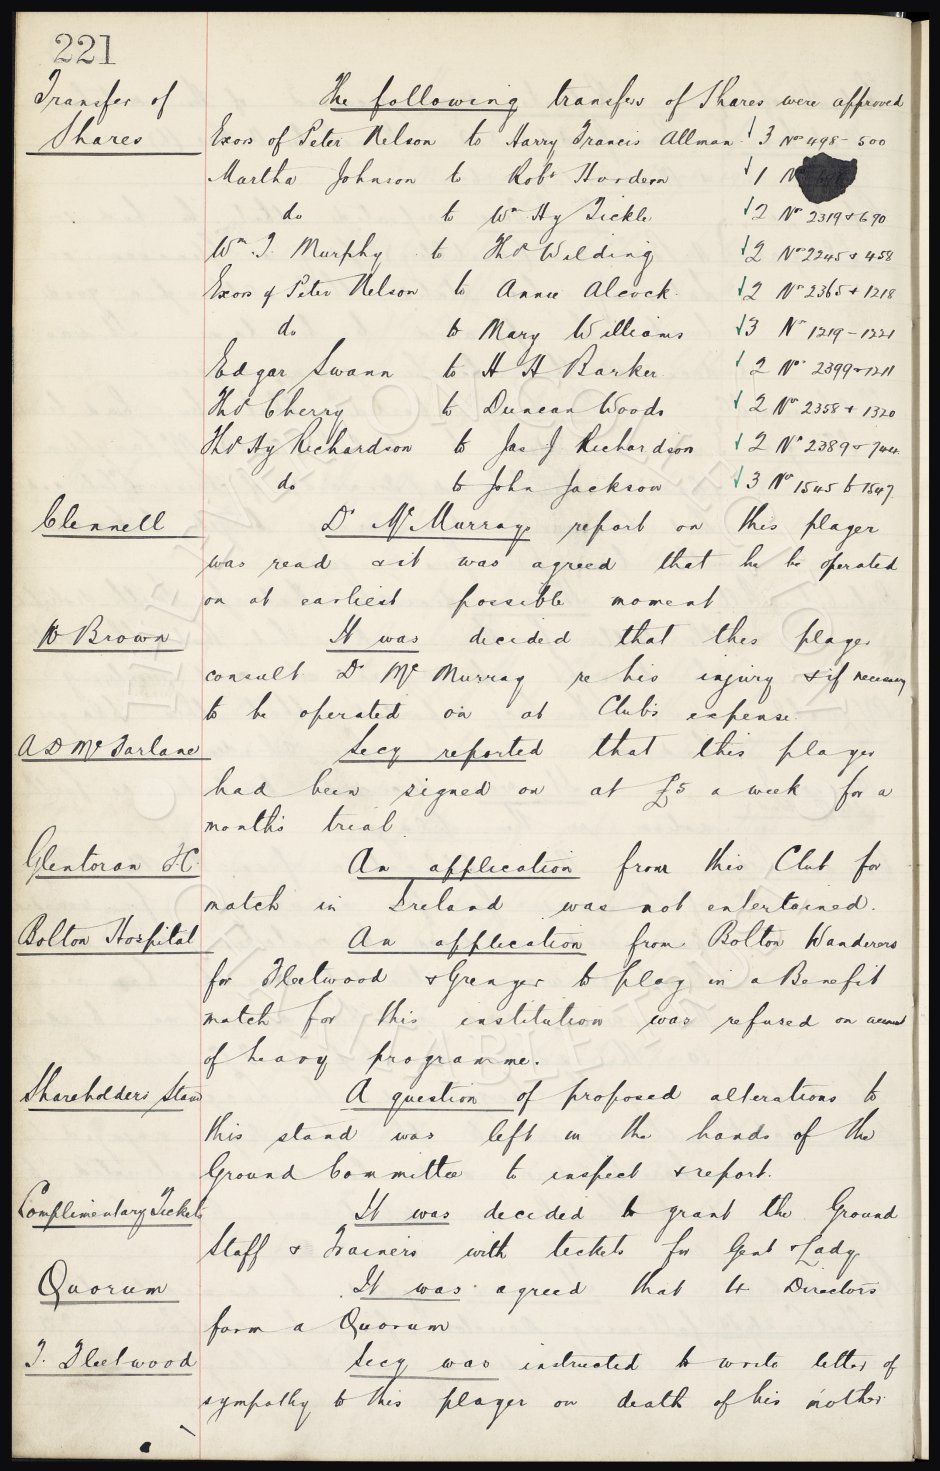 221
Transfer of
Shares
The following transfers of Shares were approved
Exors of Peter Nelson to Harry Francis Allman 3 Nos 498 - 500
Martha Johnson to Robt Hordern 1 No
do to Wm Hy Tickle 2 Nos 2319 & 690
Wm T. Murphy to Thos Wilding 2 Nos 2245 & 458
Exors of Peter Nelson to Annie Alcock. 2 Nos 2365 & 1218
do to Mary Williams 3 Nos 1219 - 1221
Edgar Swann to H H Barker 2 Nos 2399 & 1211
Thos Cherry to Duncan Woods 2 Nos 2358 & 1320
Thos Hy Richardson to Jas J Richardson 2 Nos 2389 & 744
do to John Jackson 3 Nos 1545 to 1547
Clennell
Dr McMurrays report on this player
was read & it was agreed that he be operated
on at earliest possible moment
W Brown
It was decided that this player
consult Dr McMurray re his injury & if necessary
to be operated on at Club's expense.
A D McFarlane
Secy reported that this player
had been signed on at £5 a week for a
month's trial.
Glentoran FC.
An application from this Club for
match in Ireland was not entertained.
Bolton Hospital
An application from Bolton Wanderers
for Fleetwood & Grenyer to play in a Benefit
match for this institution was refused on account
of heavy programme.
Shareholders Stand
A question of proposed alterations to
this stand was left in the hands of the
Ground Committee to inspect & report.
Complimentary Tickets
It was decided to grant the Ground
Staff & Trainers with tickets for Gent & Lady
Quorum
It was agreed that 4 Directors
form a Quorum
T. Fleetwood
Secy was instructed to write letter of
sympathy to this player on death of his mother.